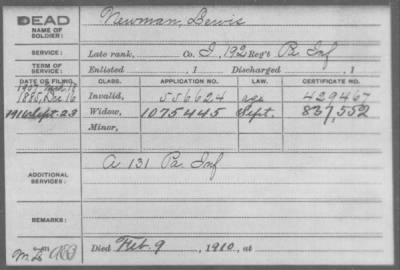 DEAD
NAME OF SOLDIER: Newman, Lewis
SERVICE: Late rank, Co. I, 192 Reg't Pa Inf
TERM OF SERVICE: Enlisted , 1 Discharged , 1
DATE OF FILING. CLASS. APPLICATION NO. LAW. CERTIFICATE NO.
1907
1885, Dec 16 Invalid, 556624 age 429467
1916 Sept. 23 Widow, 1075445 Sept. 837,552
Minor,
ADDITIONAL SERVICES: A 131 Pa Inf
REMARKS:
Died Feb. 9, 1910, at